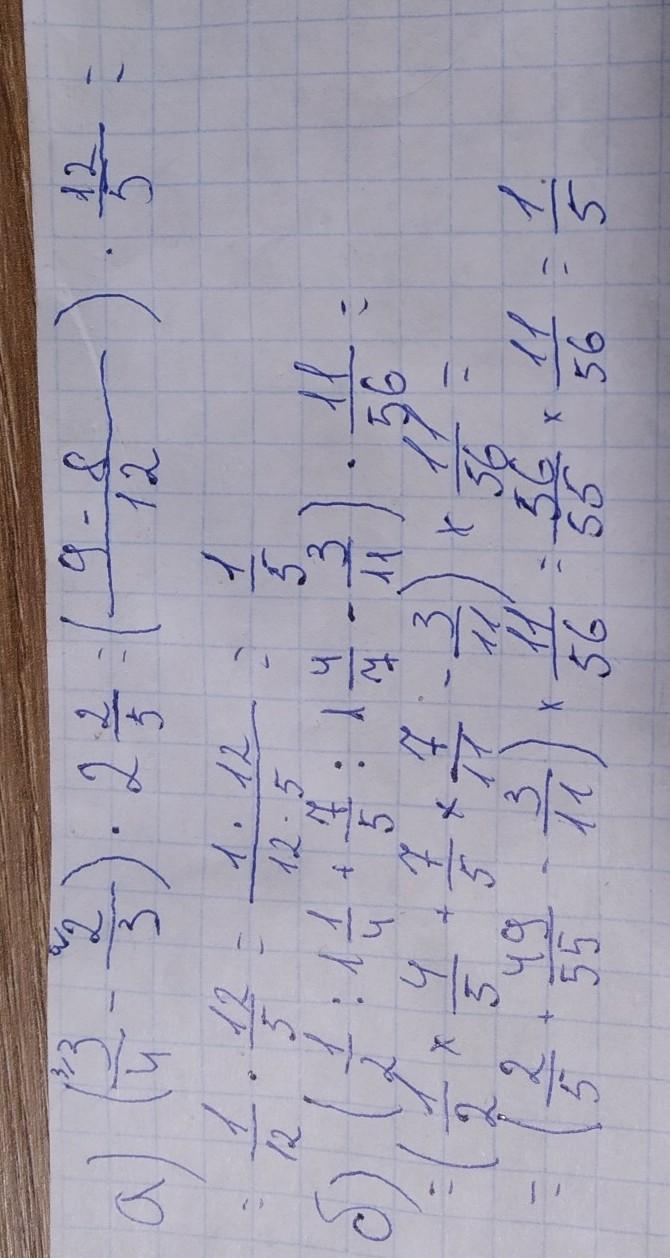 а) (3/4 - 2/3) · 2 2/5 = (9 - 8 / 12) · 12/5 =
= 1/12 · 12/5 = 1 · 12 / 12 · 5 = 1/5
б) (1/2 : 1 1/4 + 7/5 : 1 4/7 - 3/11) · 11/56 =
= (1/2 × 4/5 + 7/5 × 7/11 - 3/11) × 11/56 =
= (2/5 + 49/55 - 3/11) × 11/56 = 56/55 × 11/56 = 1/5